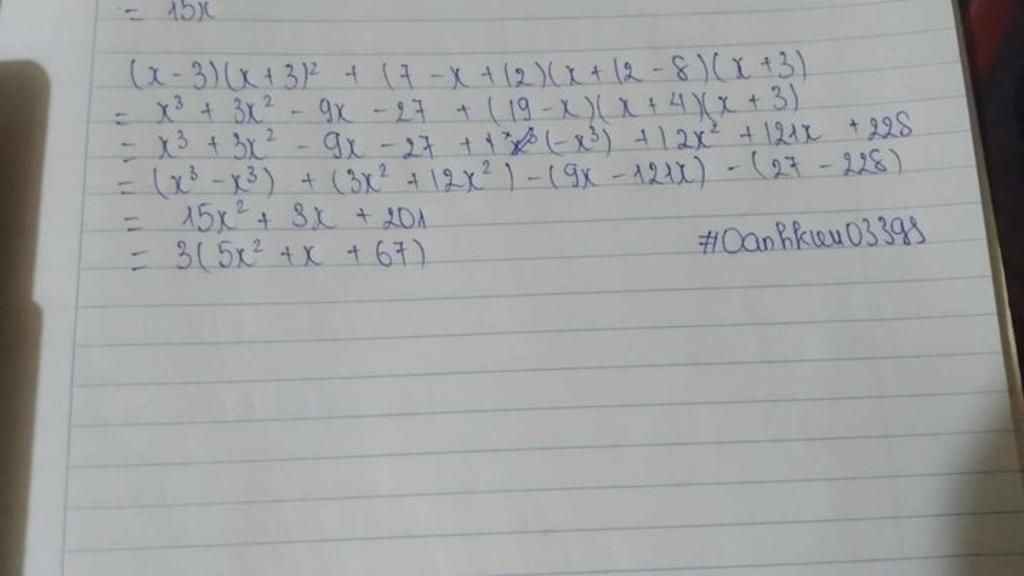 = 15x
(x - 3)(x + 3)² + (7 - x + 12)(x + 12 - 8)(x + 3)
= x³ + 3x² - 9x - 27 + (19 - x)(x + 4)(x + 3)
= x³ + 3x² - 9x - 27 + (-x³) + 12x² + 121x + 228
= (x³ - x³) + (3x² + 12x²) - (9x - 121x) - (27 - 228)
= 15x² + 3x + 201
= 3(5x² + x + 67)
#Oanhkieu03398